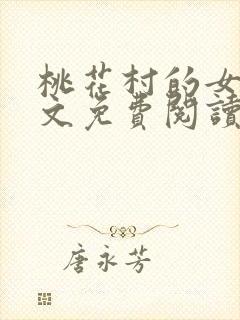 桃花村的女
文免費閱讀
唐永芳